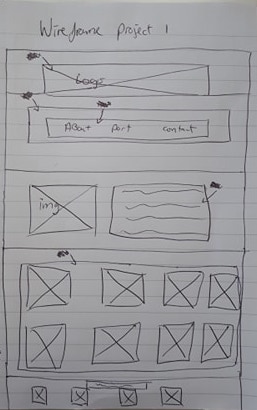 Wireframe project 1
Logo
About port contact
img